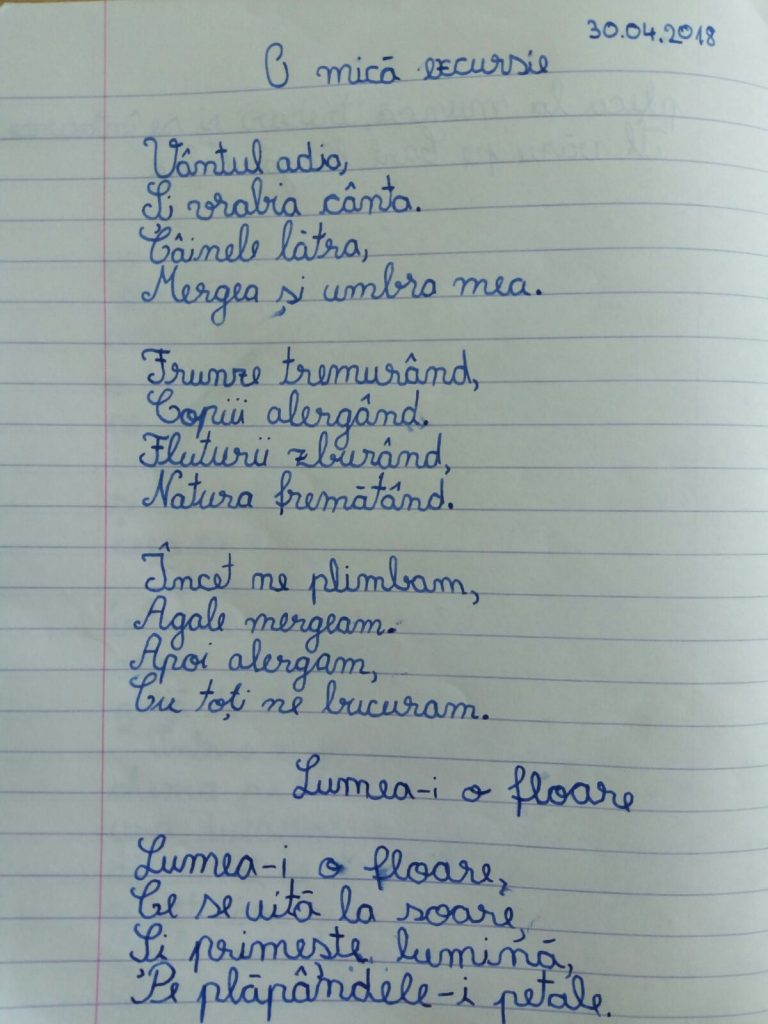 30.04.2018
O mică excursie
Vântul adia,
Și vrabia cânta.
Câinele lătra,
Mergea și umbra mea.
Frunze tremurând,
Copiii alergând.
Fluturii zburând,
Natura fremătând.
Încet ne plimbam,
Agale mergeam.
Apoi alergam,
Cu toți ne bucuram.
Lumea-i o floare
Lumea-i o floare,
Ce se uită la soare,
Și primește lumină,
Pe plăpândele-i petale.